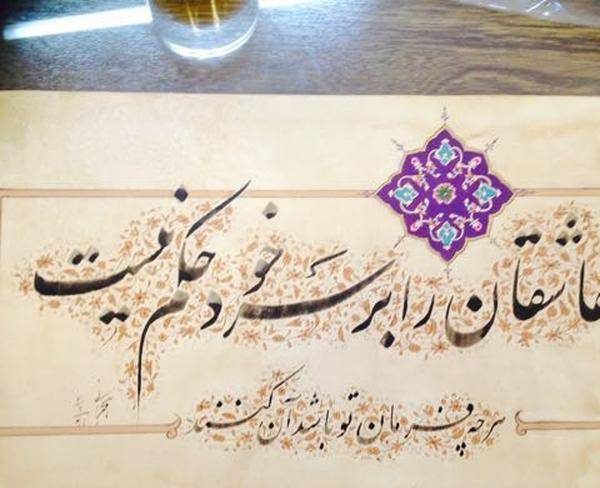 عاشقان را بر سر خود حکم نیست
هرچه فرمان تو باشد آن کنند